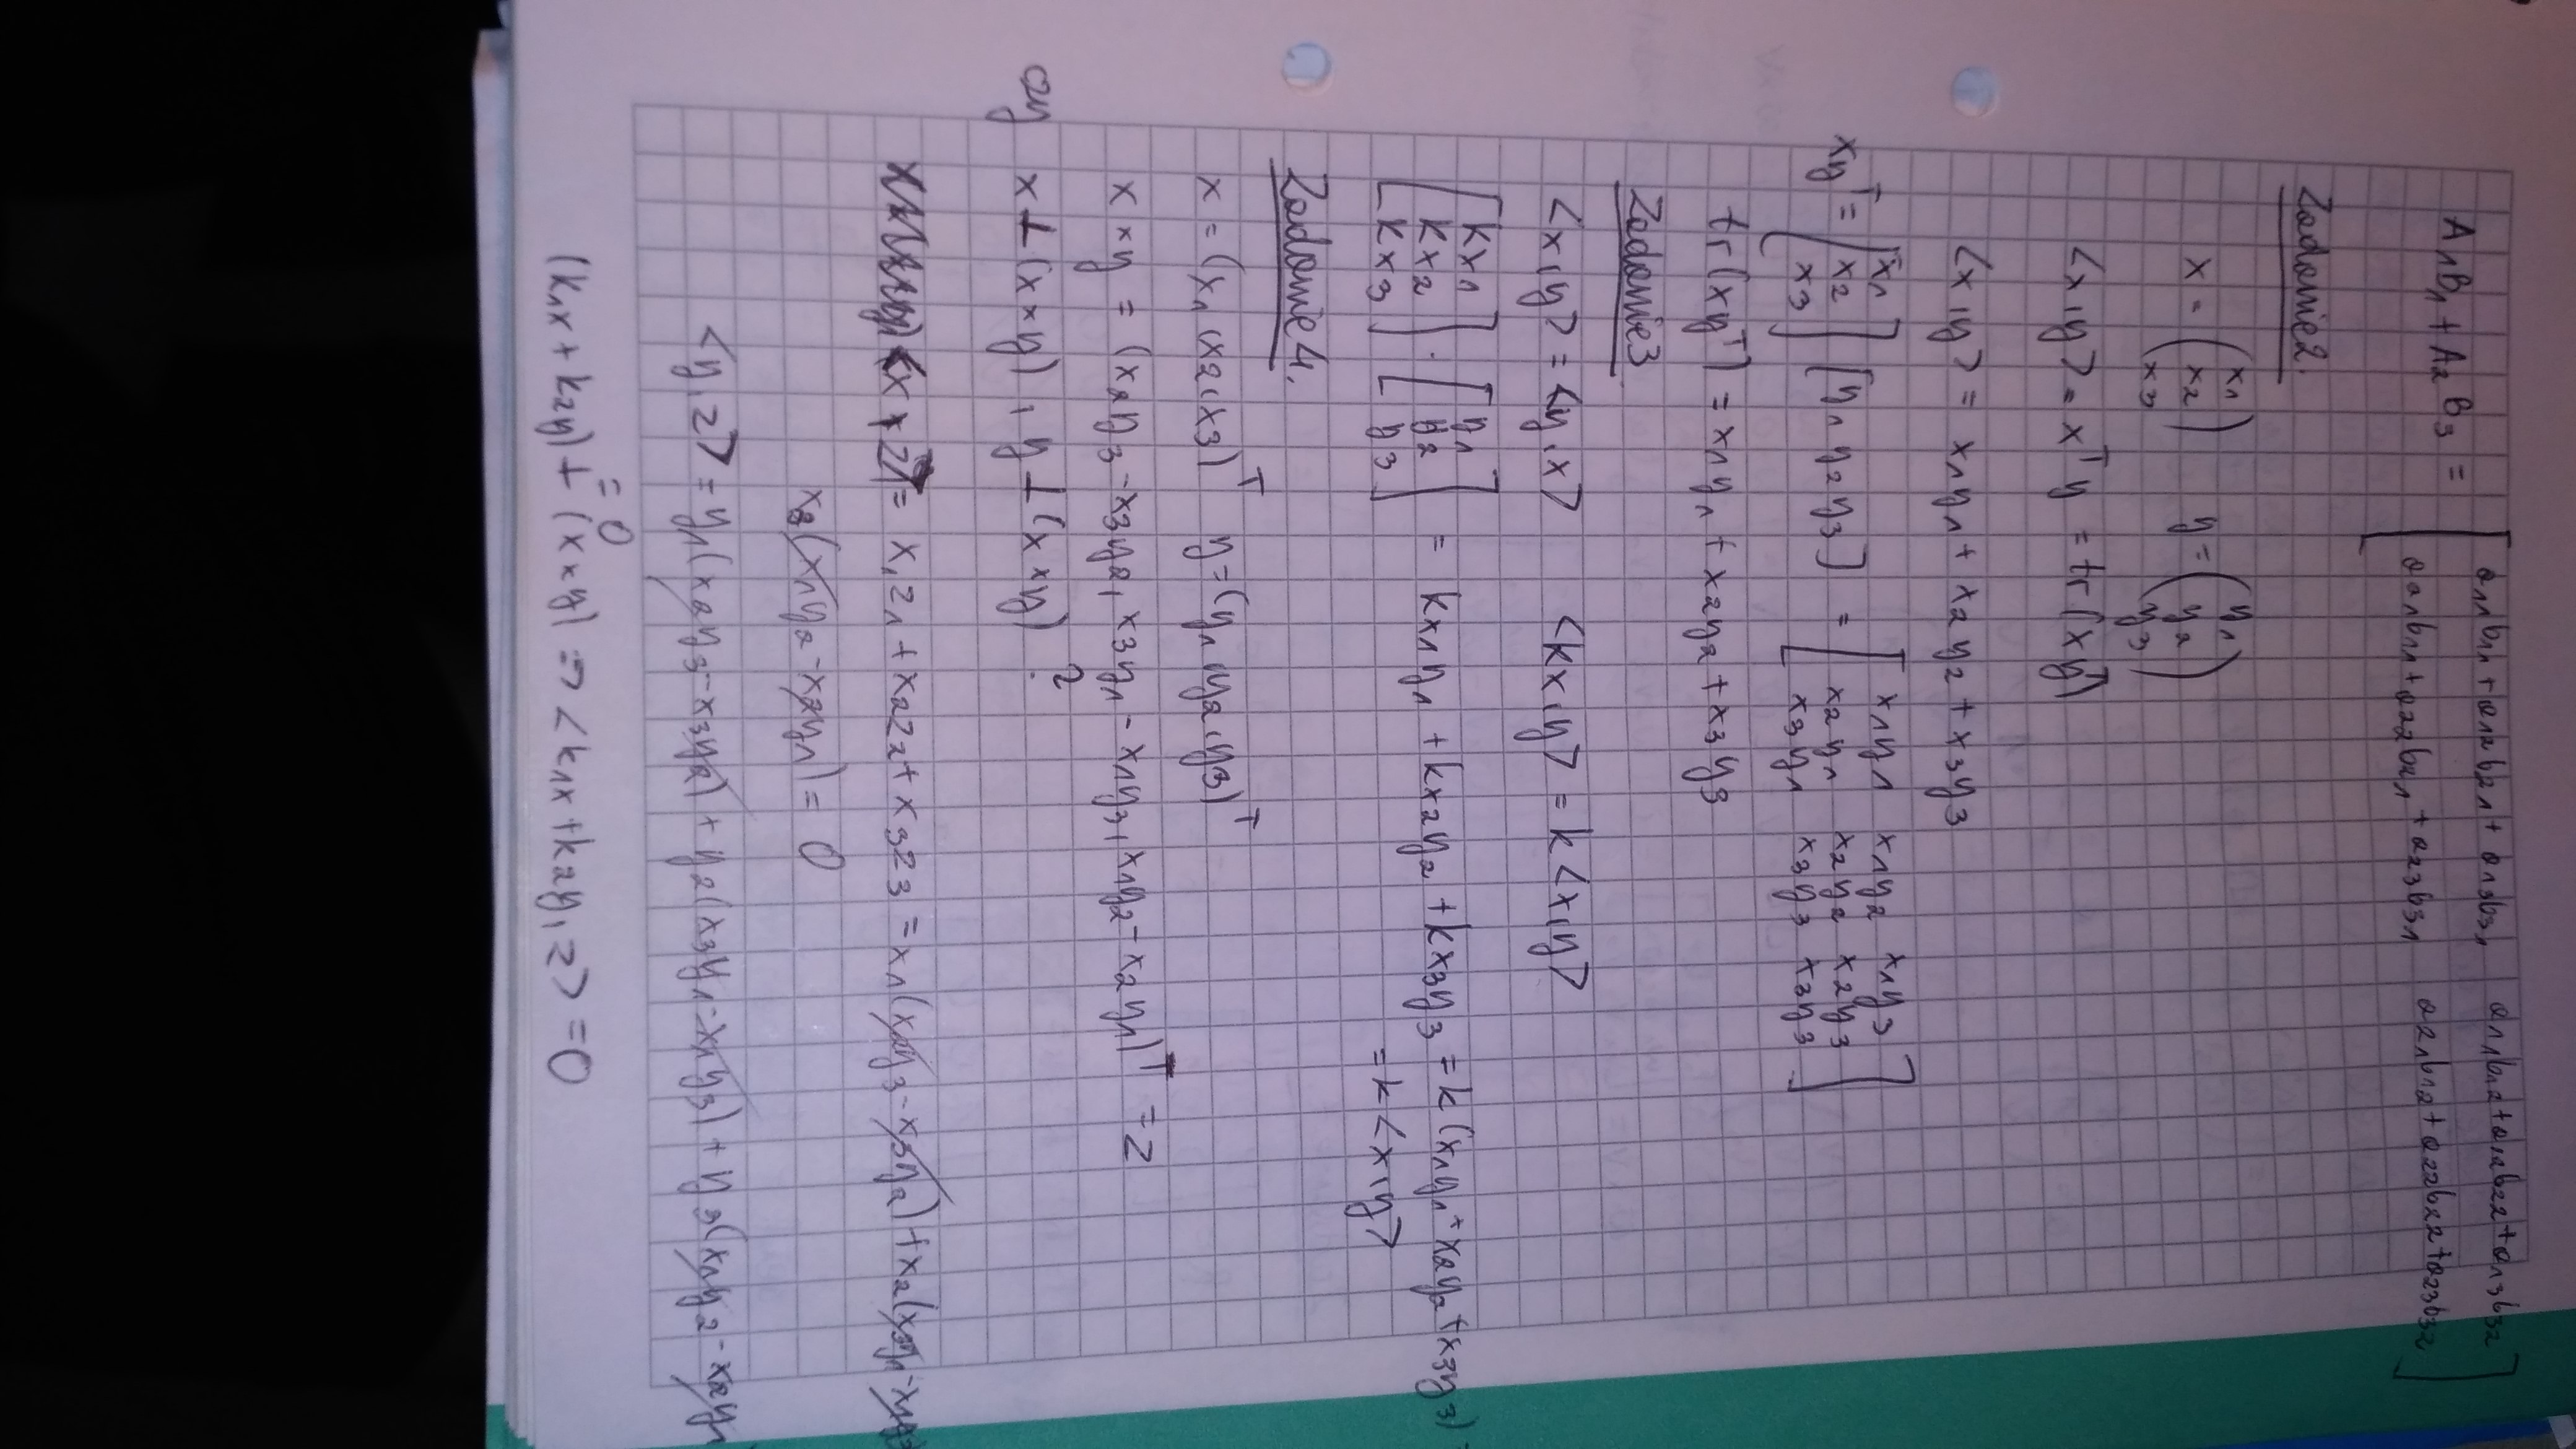 A₁B₁ + A₂B₃ = [ a₁₁b₁₁ + a₁₂b₂₁ + a₁₃b₃₁   a₁₁b₁₂ + a₁₂b₂₂ + a₁₃b₃₂ ]
[ a₂₁b₁₁ + a₂₂b₂₁ + a₂₃b₃₁   a₂₁b₁₂ + a₂₂b₂₂ + a₂₃b₃₂ ]
Zadanie 2.
x = (x₁ x₂ x₃)   y = (y₁ y₂ y₃)
<x,y> = xᵀy = tr(xyᵀ)
<x,y> = x₁y₁ + x₂y₂ + x₃y₃
xyᵀ = [x₁ x₂ x₃] [y₁ y₂ y₃] = [ x₁y₁ x₁y₂ x₁y₃
x₂y₁ x₂y₂ x₂y₃
x₃y₁ x₃y₃ x₃y₃ ]
tr(xyᵀ) = x₁y₁ + x₂y₂ + x₃y₃
Zadanie 3
<x,y> = <y,x>   <kx,y> = k<x,y>
[kx₁ kx₂ kx₃] · [y₁ y₂ y₃] = kx₁y₁ + kx₂y₂ + kx₃y₃ = k(x₁y₁ + x₂y₂ + x₃y₃)
= k<x,y>
Zadanie 4.
x = (x₁,x₂,x₃)ᵀ   y = (y₁,y₂,y₃)ᵀ
x×y = (x₂y₃ - x₃y₂, x₃y₁ - x₁y₃, x₁y₂ - x₂y₁)ᵀ = z
czy x ⊥ (x×y), y ⊥ (x×y) ?
<x,z> = x₁z₁ + x₂z₂ + x₃z₃ = x₁(x₂y₃ - x₃y₂) + x₂(x₃y₁ - x₁y₃)
x₃(x₁y₂ - x₂y₁) = 0
<y,z> = y₁(x₂y₃ - x₃y₂) + y₂(x₃y₁ - x₁y₃) + y₃(x₁y₂ - x₂y₁
= 0
(k₁x + k₂y) ⊥ (x×y) => <k₁x + k₂y, z> = 0